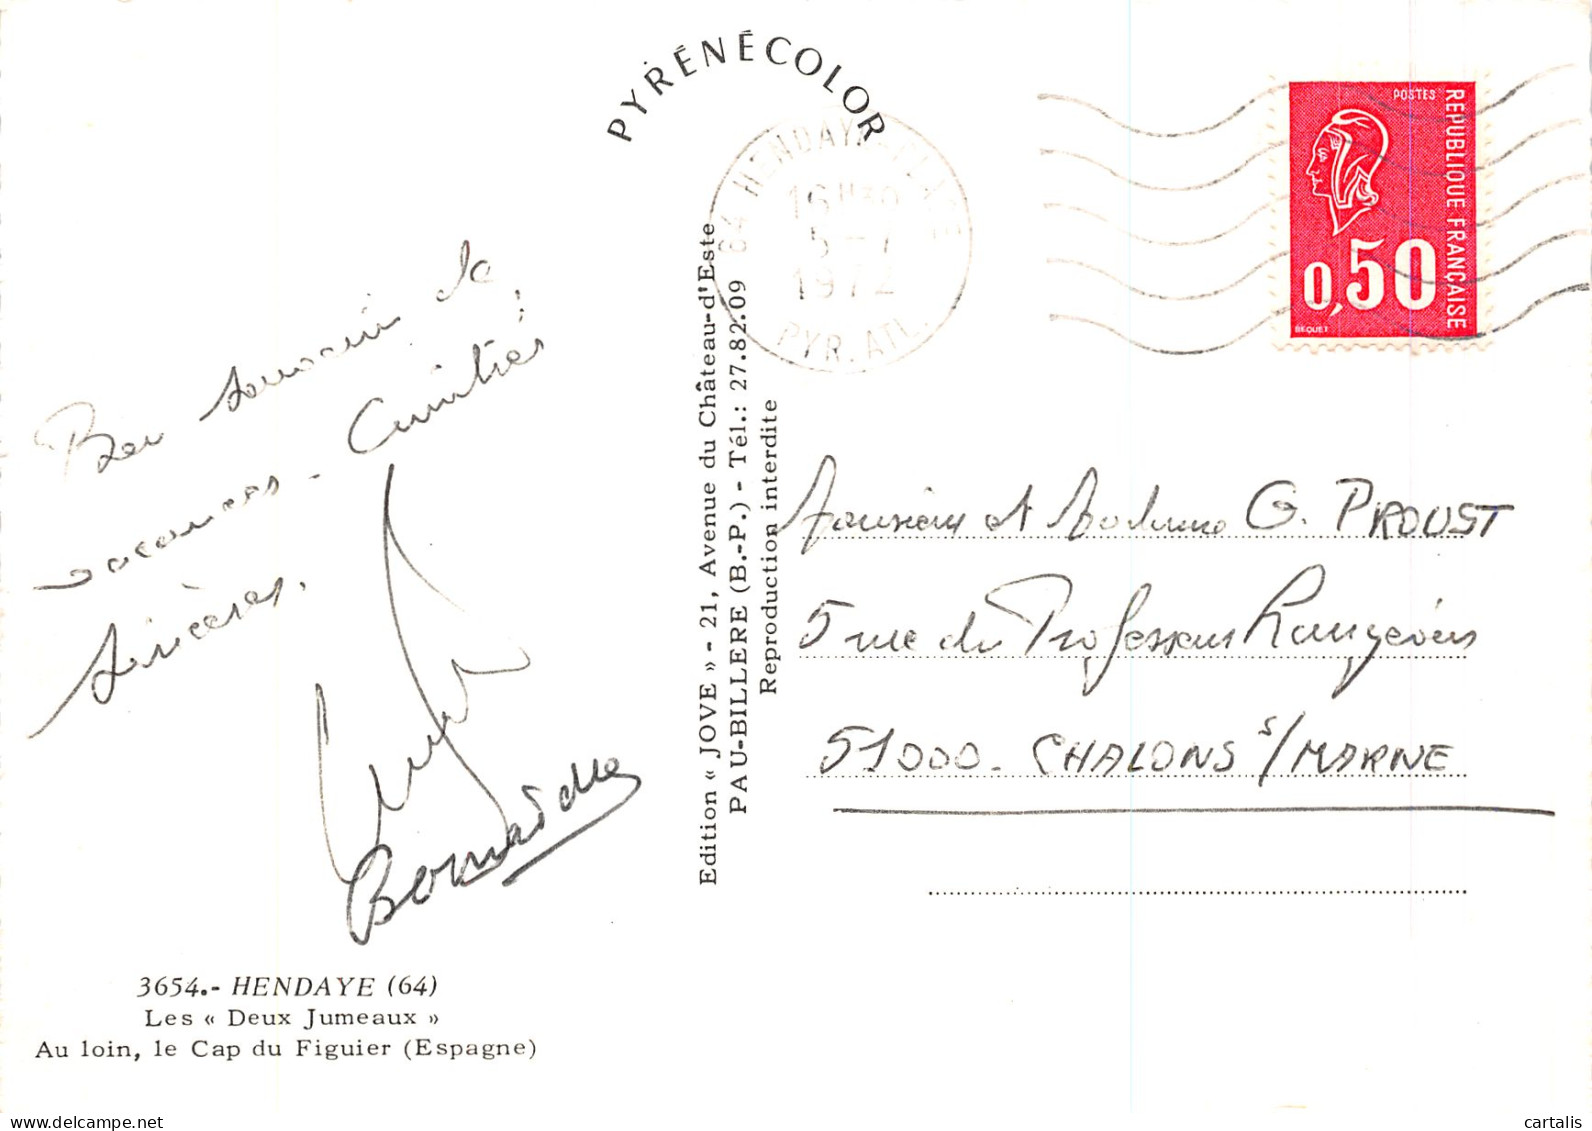 PYRÉNÉCOLOR
64 HENDAYE-PLAGE
16H30
5-7
1972
PYR. ATL.
POSTES
REPUBLIQUE FRANÇAISE
0,50
BEQUET
Bon souvenir de
vacances - Amitiés
sincères.
Edition « JOVE » - 21, Avenue du Château-d'Este
PAU-BILLERE (B.-P.) - Tél.: 27.82.09
Reproduction interdite
Monsieur et Madame G. PROUST
5 rue du Professeur Langevin
51000 - CHALONS s/MARNE
3654.- HENDAYE (64)
Les « Deux Jumeaux »
Au loin, le Cap du Figuier (Espagne)
delcampe.net
cartalis